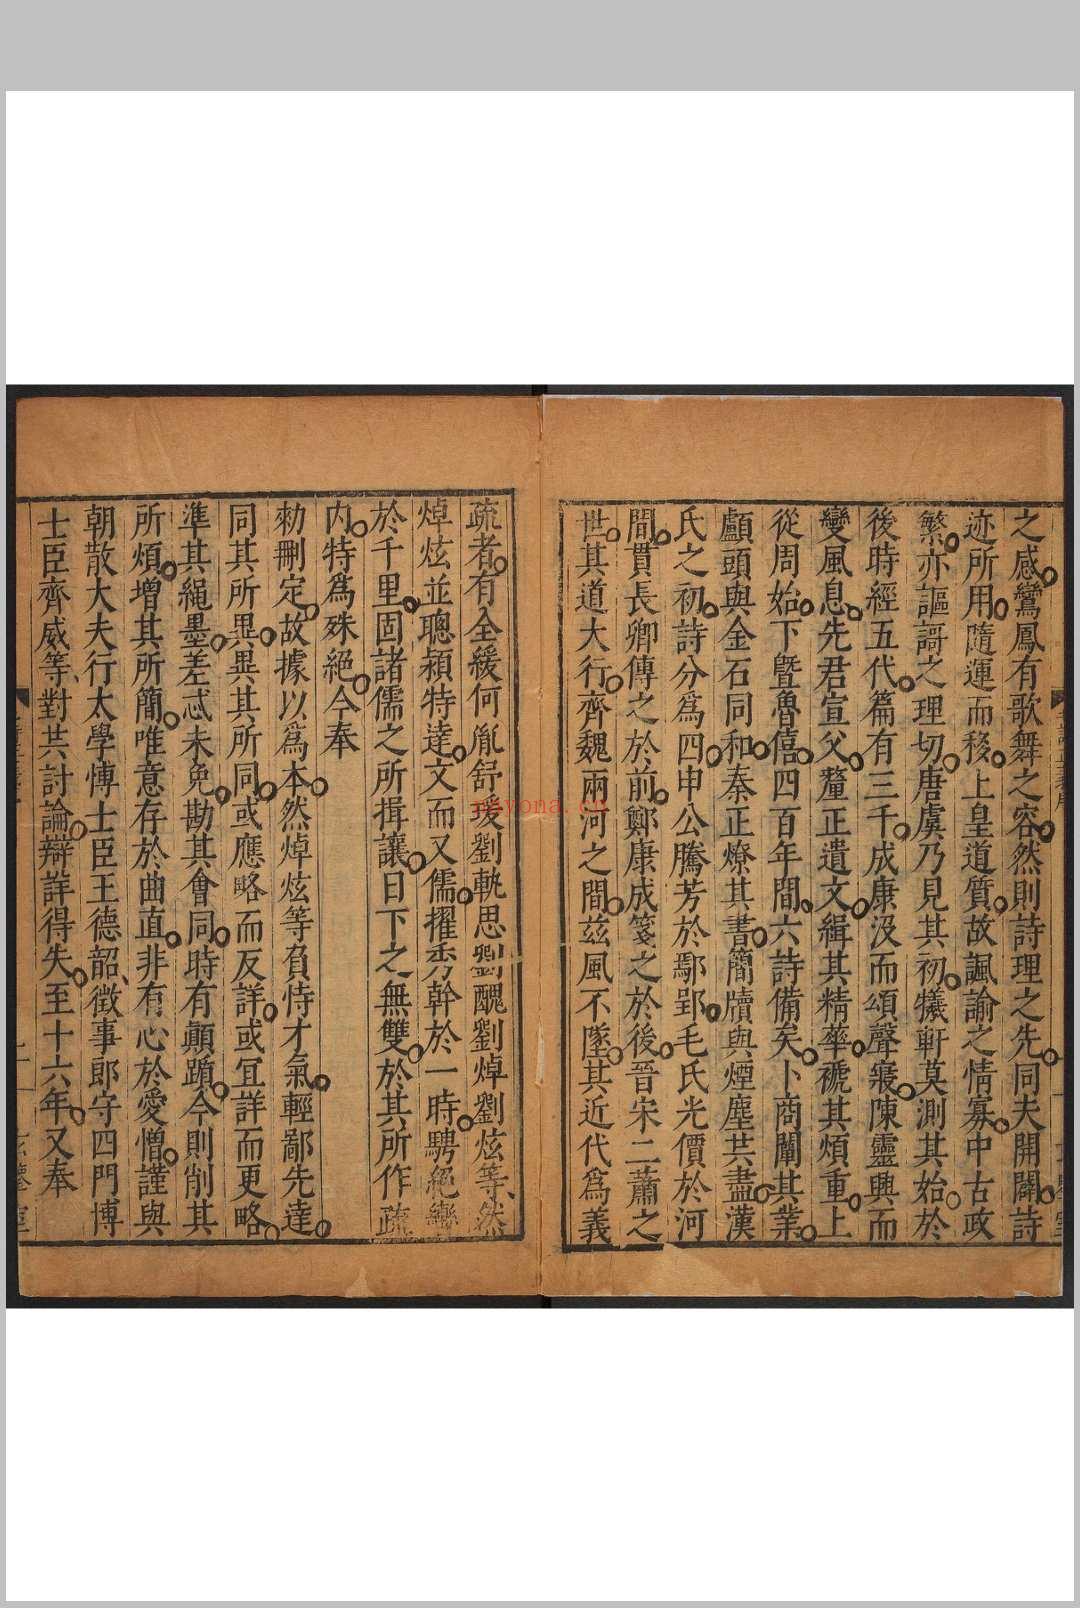 之感鸞鳳有歌舞之容然則詩理之先同夫開闢詩
迹所用隨運而移上皇道質故諷諭之情寡中古政
繁亦謳謌之理切唐虞乃見其初犧軒莫測其始於
後時經五代篇有三千成康沒而頌聲寢陳靈興而
變風息先君宣父釐正遺文緝其精華褫其煩重上
從周始下曁魯僖四百年間六詩備矣卜商闡其業
顱頭與金石同和秦正燎其書簡牘與煙塵共盡漢
氏之初詩分爲四申公騰芳於鄢郢毛氏光價於河
間貫長卿傳之於前鄭康成箋之於後晉宋二蕭之
世其道大行齊魏兩河之間茲風不墜其近代爲義
疏者有全緩何胤舒瑗劉軌思劉醜劉焯劉炫等然
焯炫並聰穎特達文而又儒擢秀幹於一時騁絕轡
於千里固諸儒之所揖讓日下之無雙於其所作疏
内特爲殊絕今奉
勑刪定故據以爲本然焯炫等負恃才氣輕鄙先達
同其所異異其所同或應略而反詳或冝詳而更略
準其繩墨差忒未免勘其會同時有顛躓今則削其
所煩增其所簡唯意存於曲直非有心於愛憎謹與
朝散大夫行太學博士臣王德韶徵事郎守四門博
士臣齊威等對共討論辯詳得失至十六年又奉
nayona.cn